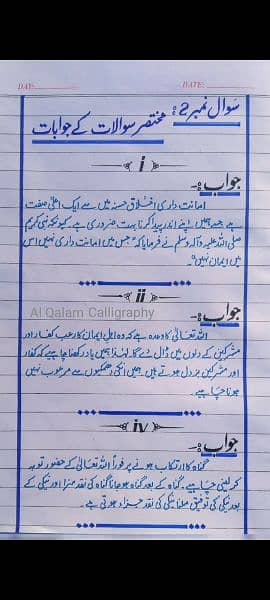 DAY: DATE:
سوال نمبر 2:
مختصر سوالات کے جوابات
i
جواب:-
امانت داری اخلاق حسنہ میں سے ایک اعلیٰ صفت
ہے جسے ہمیں اپنے اندر پیدا کرنا بہت ضروری ہے۔ کیونکہ نبی کریم
صلی اللہ علیہ وآلہ وسلم نے فرمایا کہ "جس میں امانت داری نہیں اس
میں ایمان نہیں"۔
ii
جواب:-
Al Qalam Calligraphy
اللہ تعالیٰ کا وعدہ ہے کہ وہ اہل ایمان کا رعب کفار اور
مشرکین کے دلوں میں ڈال دے گا۔ لہٰذا ہمیں یاد رکھنا چاہیے کہ کفار
مشرکین بزدل ہوتے ہیں۔ ہمیں انکی دھمکیوں سے مرعوب نہیں
ہونا چاہیے۔
iv
جواب:-
گناہ کا ارتکاب ہونے پر فوراً اللہ تعالیٰ کے حضور توبہ
کر لینی چاہیے۔ گناہ کے بعد گناہ ہو جانا گناہ کی نقد سزا اور نیکی کے
بعد نیکی کی توفیق ملنا نیکی کی نقد جزاء ہوتی ہے۔